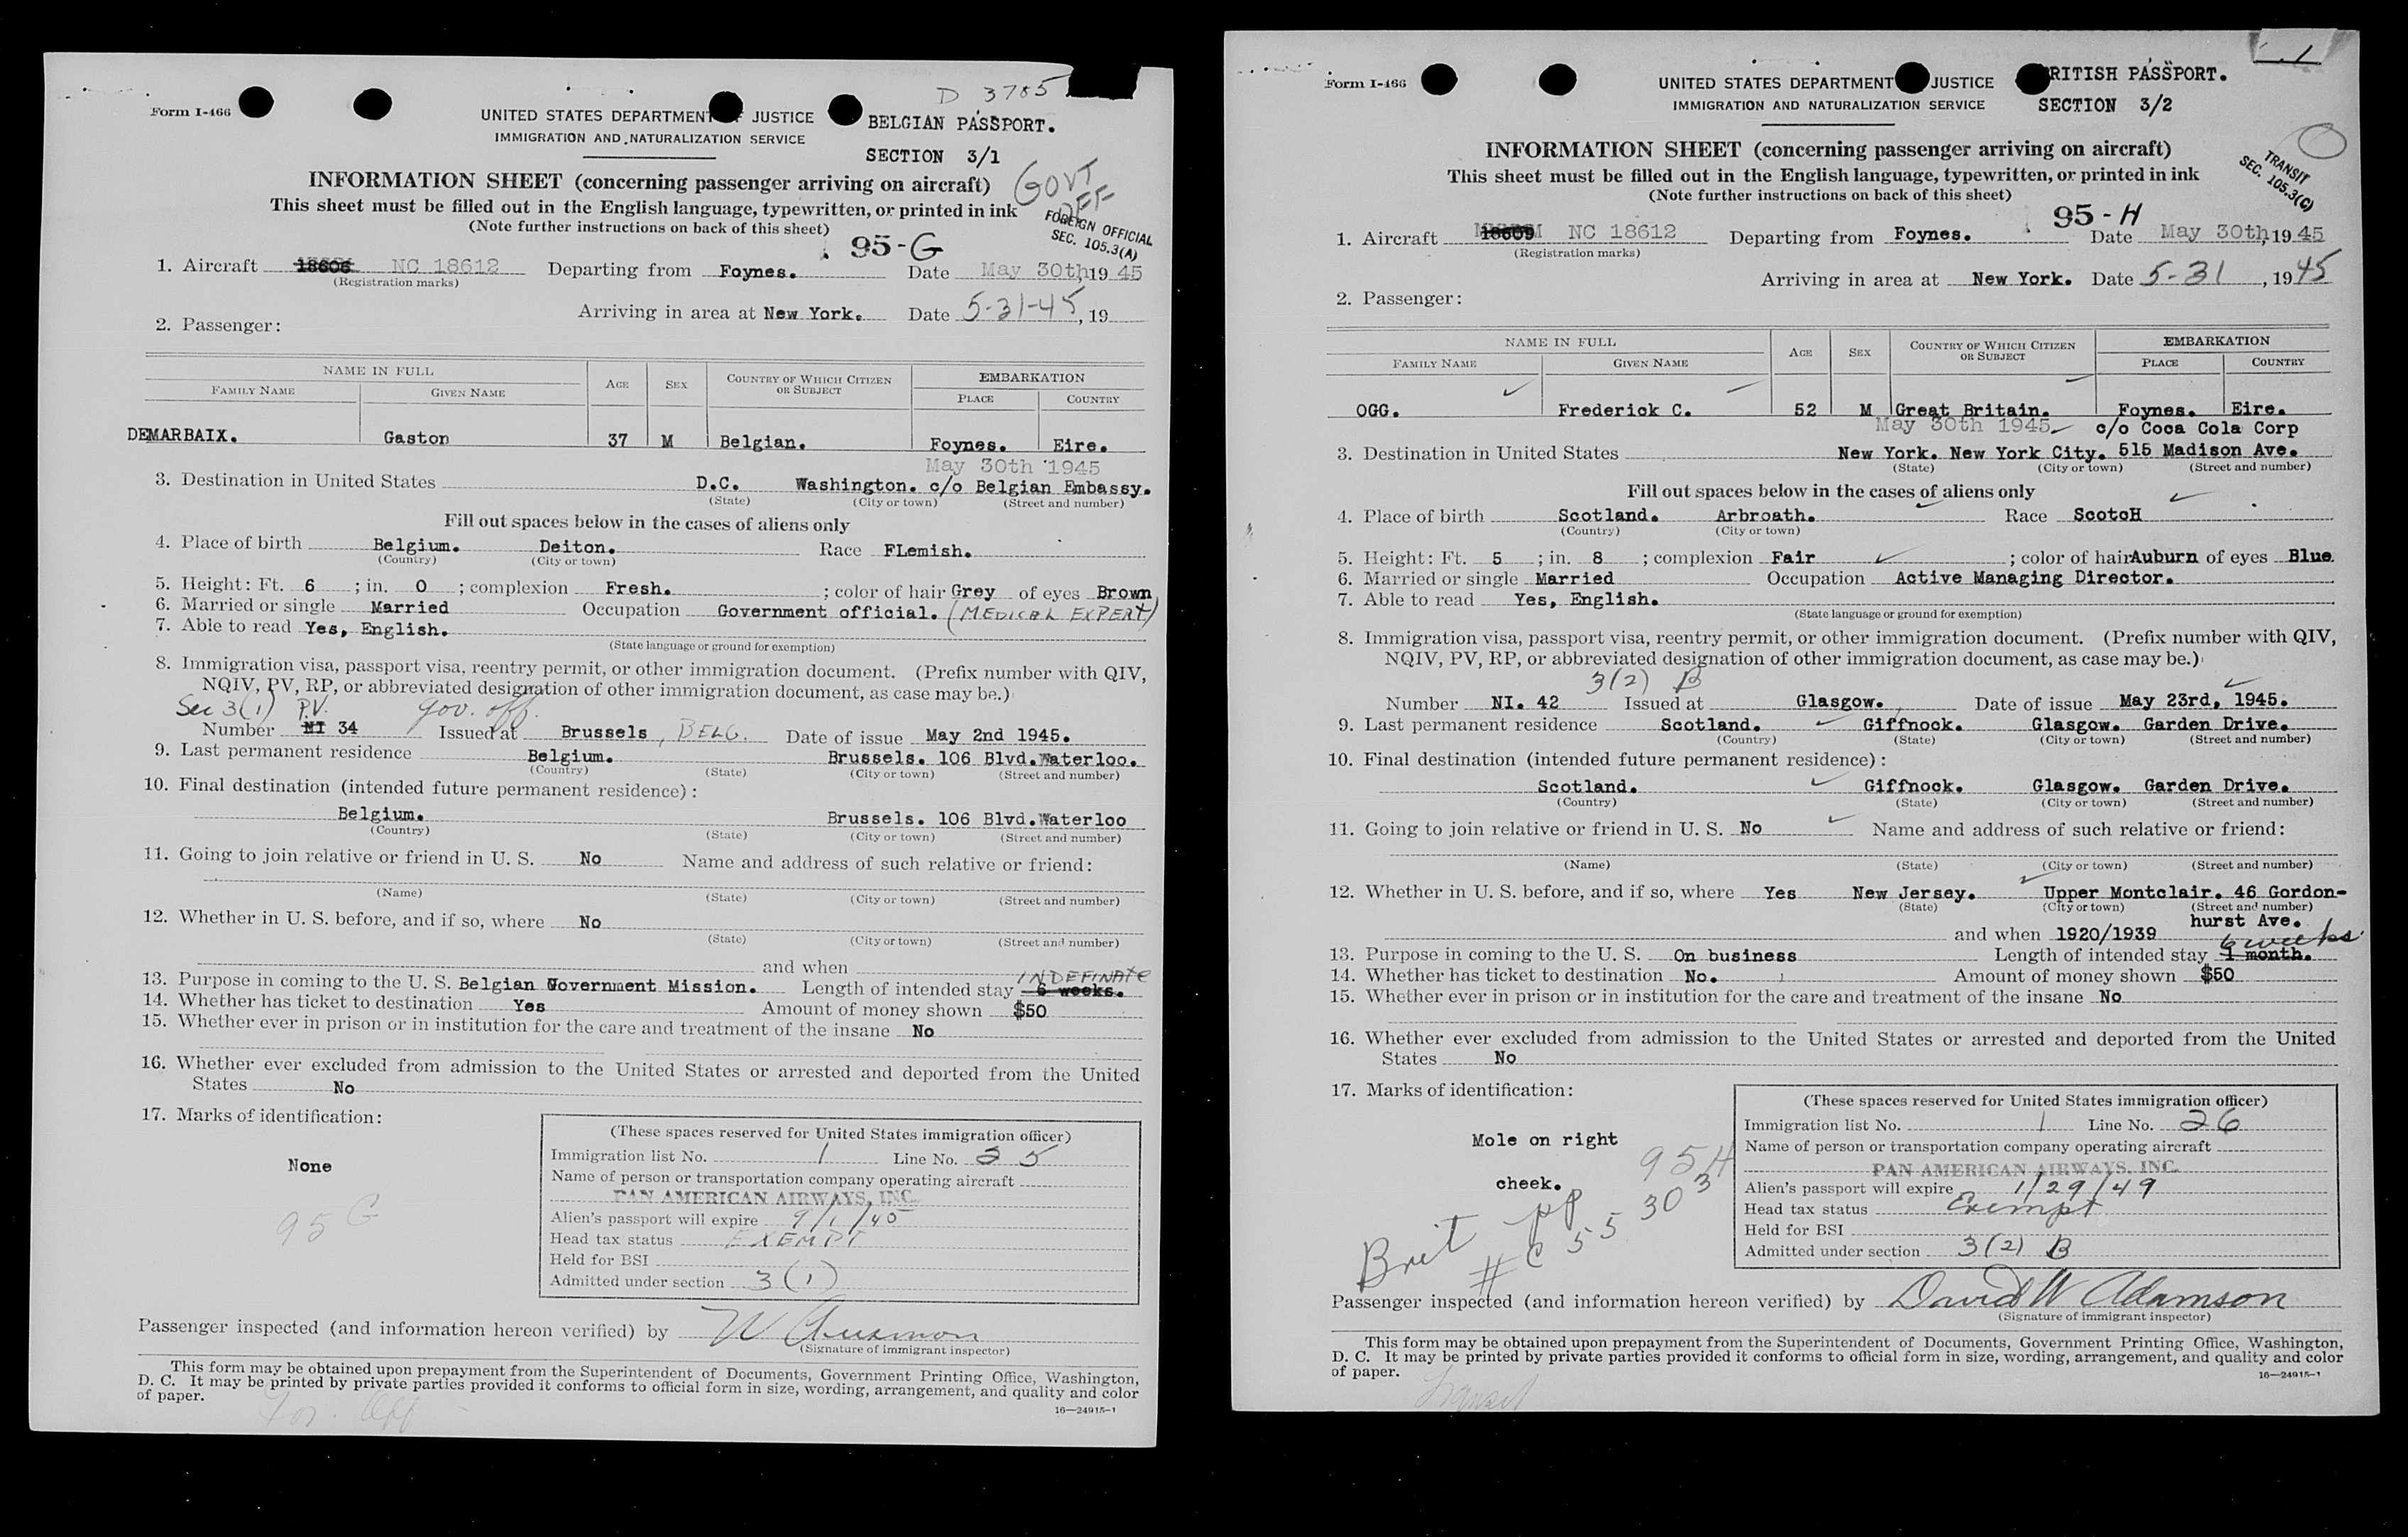 D 3785
Form I-466
UNITED STATES DEPARTMENT OF JUSTICE
BELGIAN PASSPORT.
IMMIGRATION AND NATURALIZATION SERVICE
SECTION 3/1
INFORMATION SHEET (concerning passenger arriving on aircraft)
GOVT
OFF
This sheet must be filled out in the English language, typewritten, or printed in ink
FOREIGN OFFICIAL
SEC. 105.3(A)
(Note further instructions on back of this sheet)
95-G
1. Aircraft 18606 NC 18612 Departing from Foynes. Date May 30th, 19 45
(Registration marks)
Arriving in area at New York. Date 5-31-45, 19
2. Passenger:
NAME IN FULL
FAMILY NAME GIVEN NAME AGE SEX COUNTRY OF WHICH CITIZEN OR SUBJECT EMBARKATION
PLACE COUNTRY
DEMARBAIX. Gaston 37 M Belgian. Foynes. Eire.
May 30th 1945
3. Destination in United States D.C. Washington. c/o Belgian Embassy.
(State) (City or town) (Street and number)
Fill out spaces below in the cases of aliens only
4. Place of birth Belgium. Deiton. Race FLemish.
(Country) (City or town)
5. Height: Ft. 6 ; in. 0 ; complexion Fresh. ; color of hair Grey of eyes Brown
6. Married or single Married Occupation Government official. (MEDICAL EXPERT)
7. Able to read Yes, English.
(State language or ground for exemption)
8. Immigration visa, passport visa, reentry permit, or other immigration document. (Prefix number with QIV,
NQIV, PV, RP, or abbreviated designation of other immigration document, as case may be.)
Sec 3(1) P.V. gov. off.
Number NI 34 Issued at Brussels, BELG. Date of issue May 2nd 1945.
9. Last permanent residence Belgium. Brussels. 106 Blvd.Waterloo.
(Country) (State) (City or town) (Street and number)
10. Final destination (intended future permanent residence):
Belgium. Brussels. 106 Blvd.Waterloo
(Country) (State) (City or town) (Street and number)
11. Going to join relative or friend in U. S. No Name and address of such relative or friend:
(Name) (State) (City or town) (Street and number)
12. Whether in U. S. before, and if so, where No
(State) (City or town) (Street and number)
and when
INDEFINATE
13. Purpose in coming to the U. S. Belgian Government Mission. Length of intended stay 6 weeks.
14. Whether has ticket to destination Yes Amount of money shown $50
15. Whether ever in prison or in institution for the care and treatment of the insane No
16. Whether ever excluded from admission to the United States or arrested and deported from the United
States No
17. Marks of identification:
None
95 G
(These spaces reserved for United States immigration officer)
Immigration list No. 1 Line No. 25
Name of person or transportation company operating aircraft
PAN AMERICAN AIRWAYS, INC.
Alien's passport will expire 9/1/45
Head tax status EXEMPT
Held for BSI
Admitted under section 3(1)
Passenger inspected (and information hereon verified) by W
(Signature of immigrant inspector)
This form may be obtained upon prepayment from the Superintendent of Documents, Government Printing Office, Washington,
D. C. It may be printed by private parties provided it conforms to official form in size, wording, arrangement, and quality and color
of paper.
16—24915-1
For. Off
1
Form I-466
UNITED STATES DEPARTMENT JUSTICE
RITISH PASSPORT.
IMMIGRATION AND NATURALIZATION SERVICE
SECTION 3/2
INFORMATION SHEET (concerning passenger arriving on aircraft)
TRANSIT
SEC. 105.3(C)
This sheet must be filled out in the English language, typewritten, or printed in ink
(Note further instructions on back of this sheet)
95-H
1. Aircraft 18609 NC 18612 Departing from Foynes. Date May 30th, 19 45
(Registration marks)
Arriving in area at New York. Date 5-31, 19 45
2. Passenger:
NAME IN FULL
FAMILY NAME GIVEN NAME AGE SEX COUNTRY OF WHICH CITIZEN OR SUBJECT EMBARKATION
PLACE COUNTRY
OGG. Frederick C. 52 M Great Britain. Foynes. Eire.
May 30th 1945 c/o Coca Cola Corp
3. Destination in United States New York. New York City. 515 Madison Ave.
(State) (City or town) (Street and number)
Fill out spaces below in the cases of aliens only
4. Place of birth Scotland. Arbroath. Race ScotcH
(Country) (City or town)
5. Height: Ft. 5 ; in. 8 ; complexion Fair ; color of hair Auburn of eyes Blue
6. Married or single Married Occupation Active Managing Director.
7. Able to read Yes, English.
(State language or ground for exemption)
8. Immigration visa, passport visa, reentry permit, or other immigration document. (Prefix number with QIV,
NQIV, PV, RP, or abbreviated designation of other immigration document, as case may be.)
3(2) B
Number NI. 42 Issued at Glasgow. Date of issue May 23rd, 1945.
9. Last permanent residence Scotland. Giffnock. Glasgow. Garden Drive.
(Country) (State) (City or town) (Street and number)
10. Final destination (intended future permanent residence):
Scotland. Giffnock. Glasgow. Garden Drive.
(Country) (State) (City or town) (Street and number)
11. Going to join relative or friend in U. S. No Name and address of such relative or friend:
(Name) (State) (City or town) (Street and number)
12. Whether in U. S. before, and if so, where Yes New Jersey. Upper Montclair. 46 Gordon-
(State) (City or town) (Street and number)
hurst Ave.
and when 1920/1939
6 weeks
13. Purpose in coming to the U. S. On business Length of intended stay 1 month.
14. Whether has ticket to destination No. Amount of money shown $50
15. Whether ever in prison or in institution for the care and treatment of the insane No
16. Whether ever excluded from admission to the United States or arrested and deported from the United
States No
17. Marks of identification:
Mole on right
cheek.
95H
Brit pp
#C 55 303
(These spaces reserved for United States immigration officer)
Immigration list No. 1 Line No. 26
Name of person or transportation company operating aircraft
PAN AMERICAN AIRWAYS, INC.
Alien's passport will expire 1/29/49
Head tax status Exempt
Held for BSI
Admitted under section 3(2) B
Passenger inspected (and information hereon verified) by David W Adamson
(Signature of immigrant inspector)
This form may be obtained upon prepayment from the Superintendent of Documents, Government Printing Office, Washington,
D. C. It may be printed by private parties provided it conforms to official form in size, wording, arrangement, and quality and color
of paper.
16—24915-1
Transit